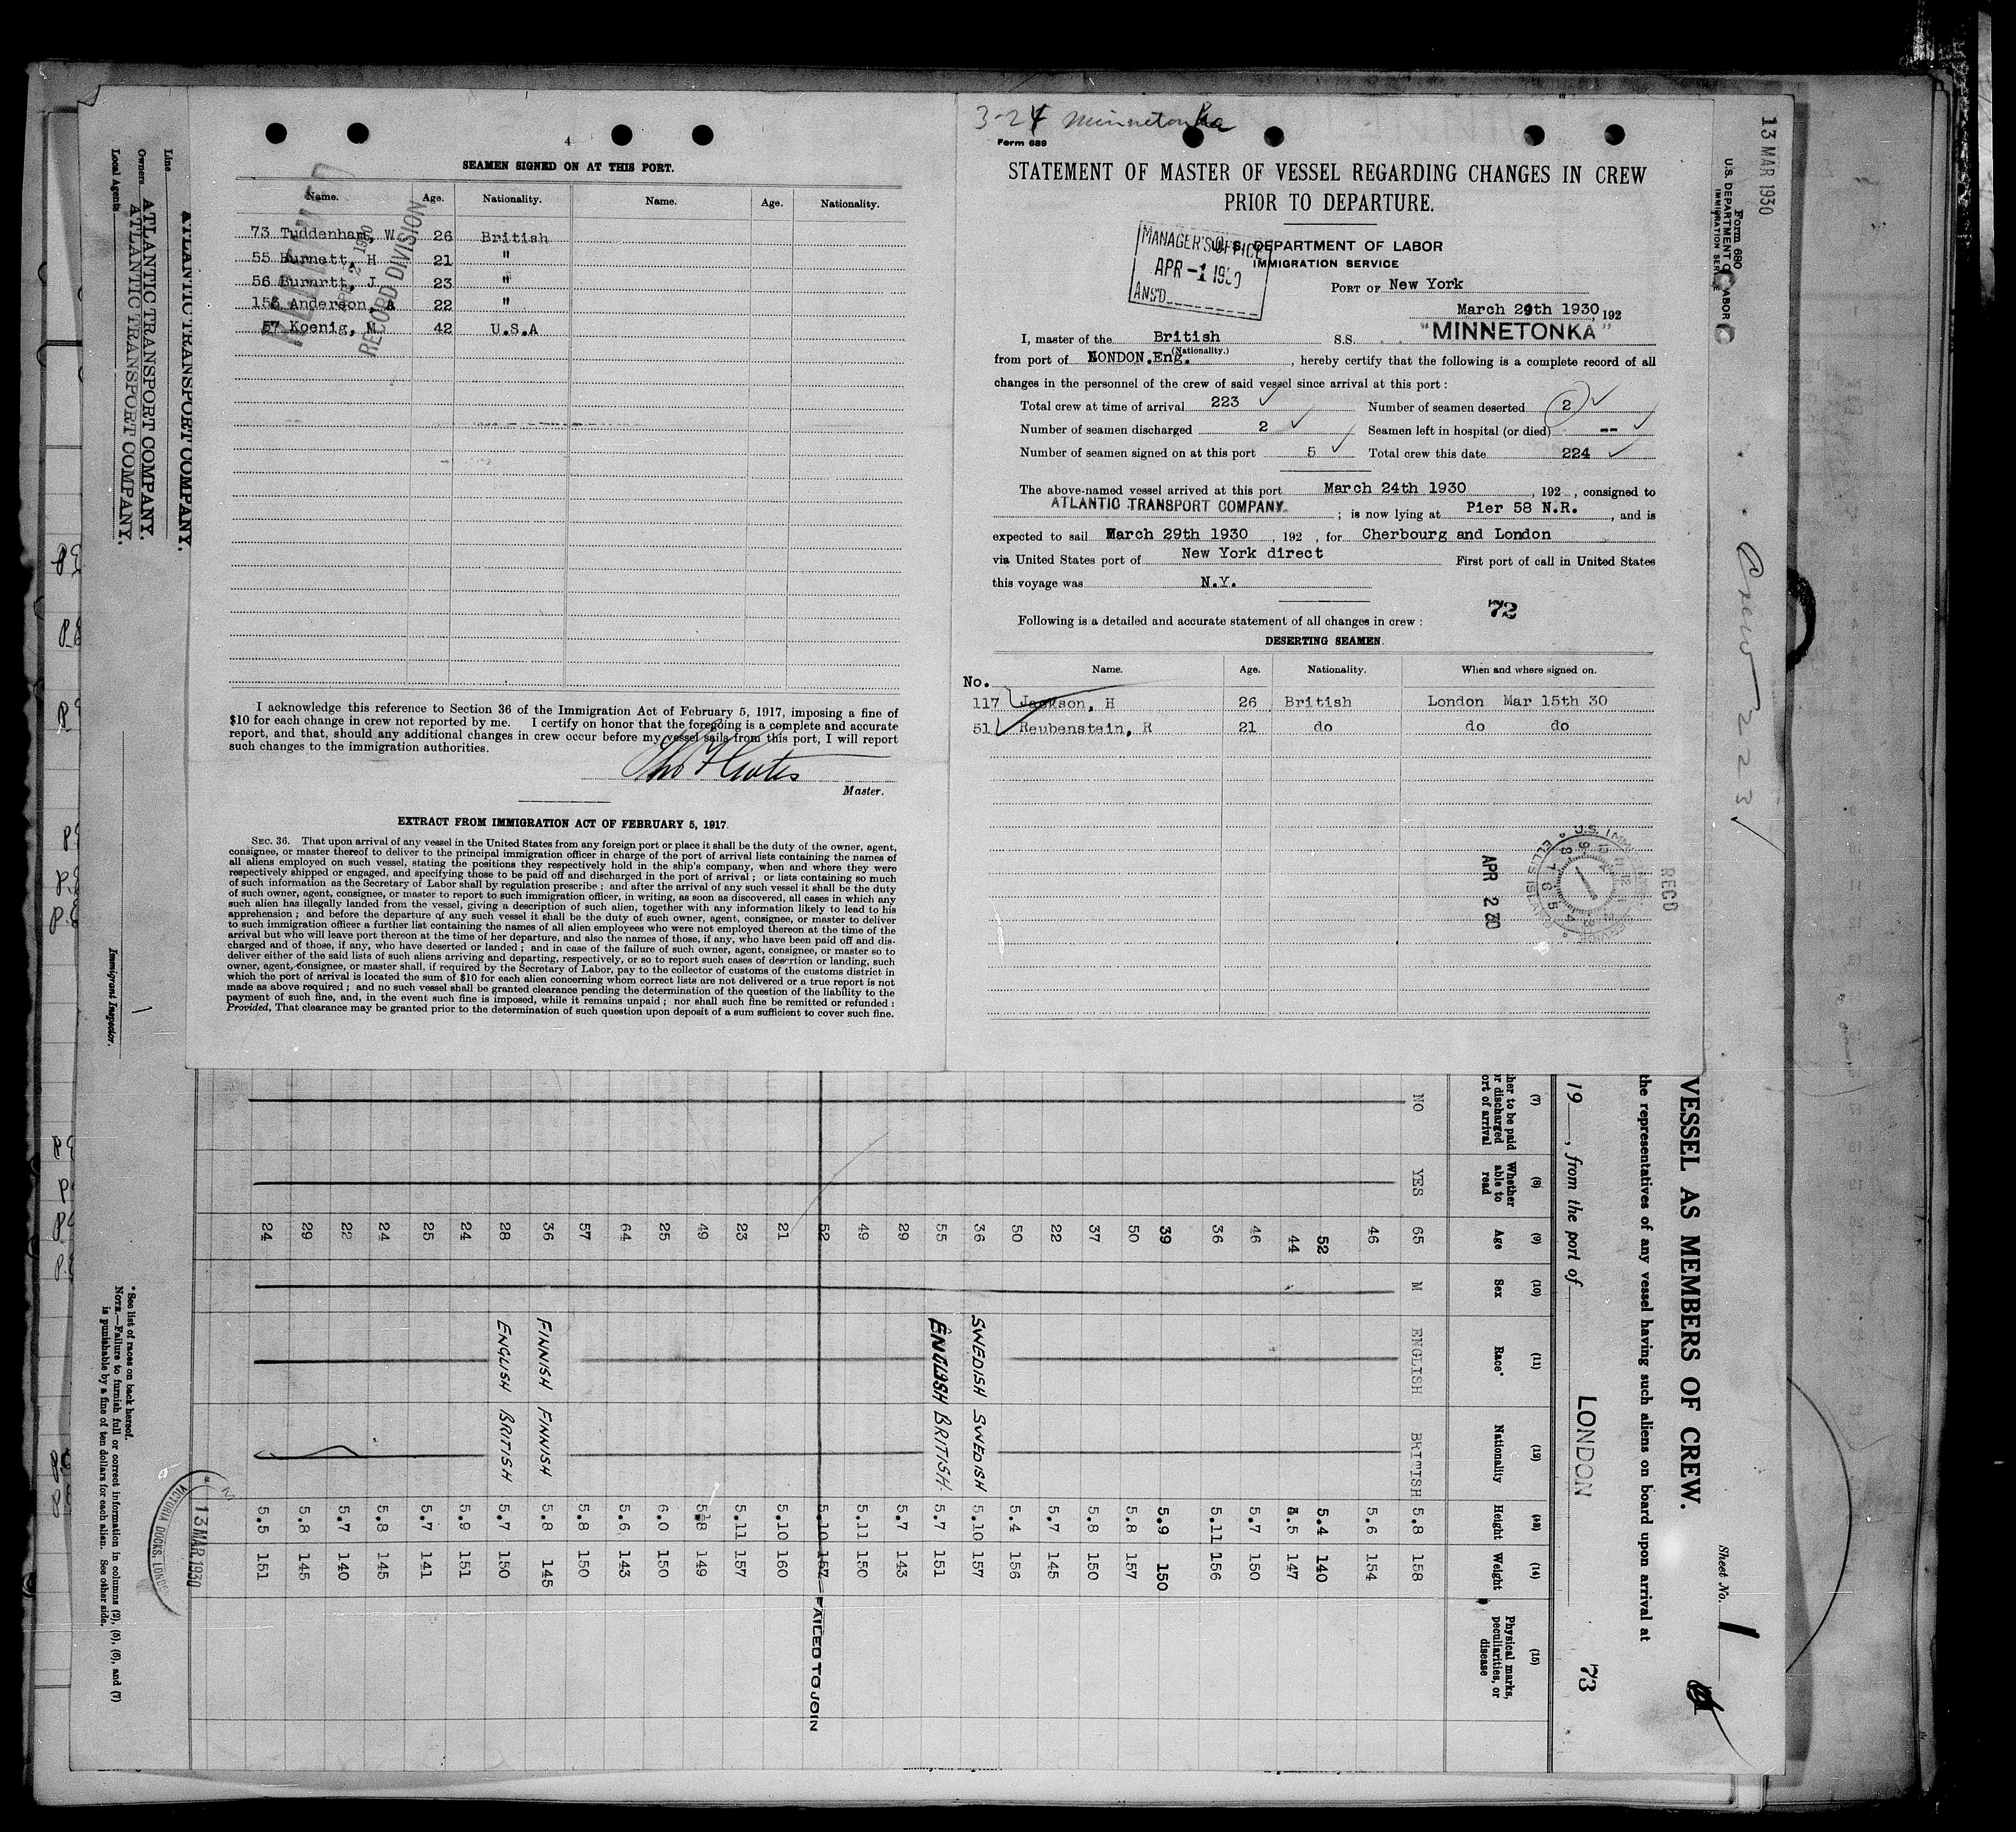 4
SEAMEN SIGNED ON AT THIS PORT.
Name. Age. Nationality. Name. Age. Nationality.
73 Tuddenham, W. 26 British
55 Burnett, H 21 "
56 Burnrtt, J. 23 "
156 Anderson, A 22 "
57 Koenig, M. 42 U.S.A
RECORD DIVISION
I acknowledge this reference to Section 36 of the Immigration Act of February 5, 1917, imposing a fine of
$10 for each change in crew not reported by me. I certify on honor that the foregoing is a complete and accurate
report, and that, should any additional changes in crew occur before my vessel sails from this port, I will report
such changes to the immigration authorities.
Master.
EXTRACT FROM IMMIGRATION ACT OF FEBRUARY 5, 1917.
SEC. 36. That upon arrival of any vessel in the United States from any foreign port or place it shall be the duty of the owner, agent,
consignee, or master thereof to deliver to the principal immigration officer in charge of the port of arrival lists containing the names of
all aliens employed on such vessel, stating the positions they respectively hold in the ship's company, when and where they were
respectively shipped or engaged, and specifying those to be paid off and discharged in the port of arrival; or lists containing so much
of such information as the Secretary of Labor shall by regulation prescribe; and after the arrival of any such vessel it shall be the duty
of such owner, agent, consignee, or master to report to such immigration officer, in writing, as soon as discovered, all cases in which any
such alien has illegally landed from the vessel, giving a description of such alien, together with any information likely to lead to his
apprehension; and before the departure of any such vessel it shall be the duty of such owner, agent, consignee, or master to deliver
to such immigration officer a further list containing the names of all alien employees who were not employed thereon at the time of the
arrival but who will leave port thereon at the time of her departure, and also the names of those, if any, who have been paid off and dis-
charged and of those, if any, who have deserted or landed; and in case of the failure of such owner, agent, consignee, or master so to
deliver either of the said lists of such aliens arriving and departing, respectively, or so to report such cases of desertion or landing, such
owner, agent, consignee, or master shall, if required by the Secretary of Labor, pay to the collector of customs of the customs district in
which the port of arrival is located the sum of $10 for each alien concerning whom correct lists are not delivered or a true report is not
made as above required; and no such vessel shall be granted clearance pending the determination of the question of the liability to the
payment of such fine, and, in the event such fine is imposed, while it remains unpaid; nor shall such fine be remitted or refunded:
Provided, That clearance may be granted prior to the determination of such question upon deposit of a sum sufficient to cover such fine.
3-24 Minnetonka
Form 689
STATEMENT OF MASTER OF VESSEL REGARDING CHANGES IN CREW
PRIOR TO DEPARTURE.
MANAGER'S OFFICE
APR -1 1930
ANS'D
U.S. DEPARTMENT OF LABOR
IMMIGRATION SERVICE
PORT OF New York
March 29th 1930, 192
I, master of the British SS. "MINNETONKA"
(Nationality.)
from port of LONDON.Eng., hereby certify that the following is a complete record of all
changes in the personnel of the crew of said vessel since arrival at this port:
Total crew at time of arrival 223 Number of seamen deserted 2
Number of seamen discharged 2 Seamen left in hospital (or died) --
Number of seamen signed on at this port 5 Total crew this date 224
The above-named vessel arrived at this port March 24th 1930, 192 , consigned to
ATLANTIC TRANSPORT COMPANY. ; is now lying at Pier 58 N.R., and is
expected to sail March 29th 1930, 192 , for Cherbourg and London
via United States port of New York direct First port of call in United States
this voyage was N.Y.
72
Following is a detailed and accurate statement of all changes in crew:
DESERTING SEAMEN.
No. Name. Age. Nationality. When and where signed on.
117 Jackson, H 26 British London Mar 15th 30
51 Reubenstein, R 21 do do do
APR 2 30
RECD
13 MAR 1930
Form 680
U.S. DEPARTMENT OF LABOR
IMMIGRATION SERVICE
Crew 223
Line ATLANTIC TRANSPORT COMPANY.
Owners ATLANTIC TRANSPORT COMPANY.
Local Agents ATLANTIC TRANSPORT COMPANY.
Immigrant Inspector.
VESSEL AS MEMBERS OF CREW.
Sheet No. 1
the representatives of any vessel having such aliens on board upon arrival at
19 , from the port of LONDON 73
(7) (8) Whether able to read (9) Age (10) Sex (11) Race* (12) Nationality (13) Height (14) Weight (15) Physical marks, peculiarities, or disease
NO YES 65 M ENGLISH BRITISH 5.8 158
46 5.6 154
52 5.4 140
44 5.5 147
46 5.7 150
36 5.11 156
39 5.9 150
50 5.8 157
37 5.8 150
22 5.7 145
50 5.4 156
36 SWEDISH SWEDISH 5.10 157
55 ENGLISH BRITISH. 5.7 151
29 5.7 143
49 5.11 150
52 5.10 157 FAILED TO JOIN
21 5.10 160
23 5.11 157
49 5.8 149
25 6.0 150
64 5.6 143
57 5.8 150
36 FINNISH FINNISH 5.8 145
28 ENGLISH BRITISH 5.7 150
24 5.9 151
25 5.7 141
24 5.8 145
22 5.7 140
29 5.8 145
24 5.5 151
13 MAR 1930
VICTORIA DOCKS, LONDON
* See list of races on back hereof.
NOTE.—Failure to furnish full or correct information in columns (2), (5), (6), and (7)
is punishable by a fine of ten dollars for each alien. See other side.